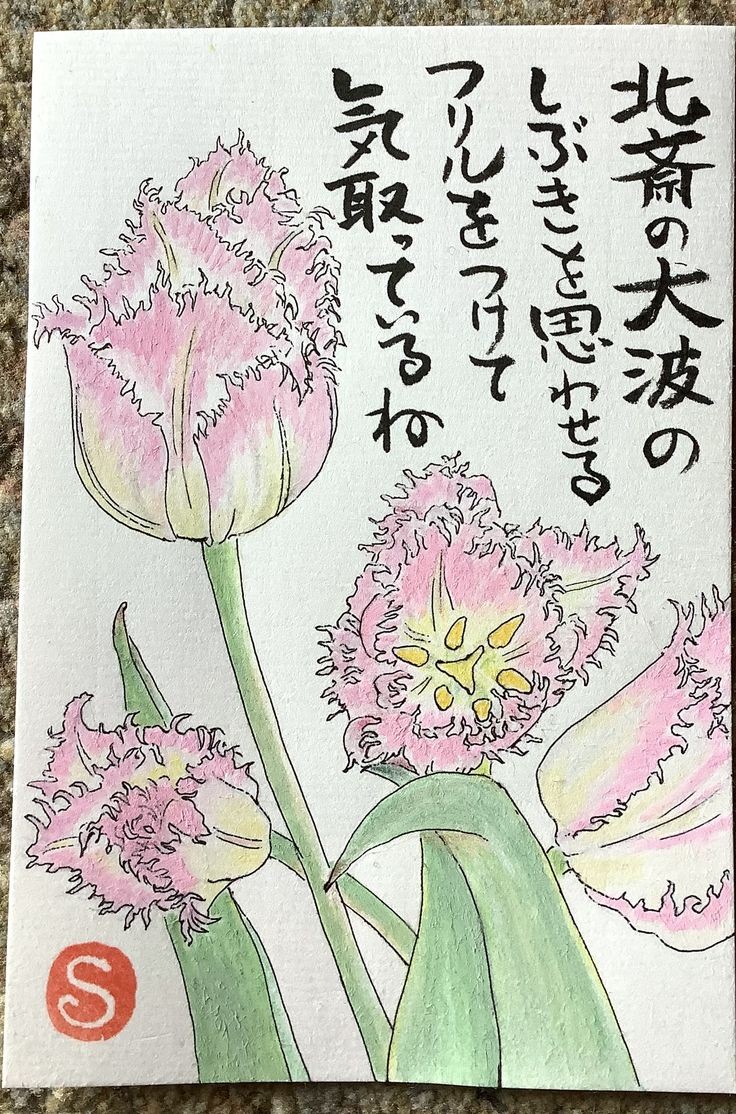 北斎の大波の
しぶきを思わせる
フリルをつけて
気取っているね
S